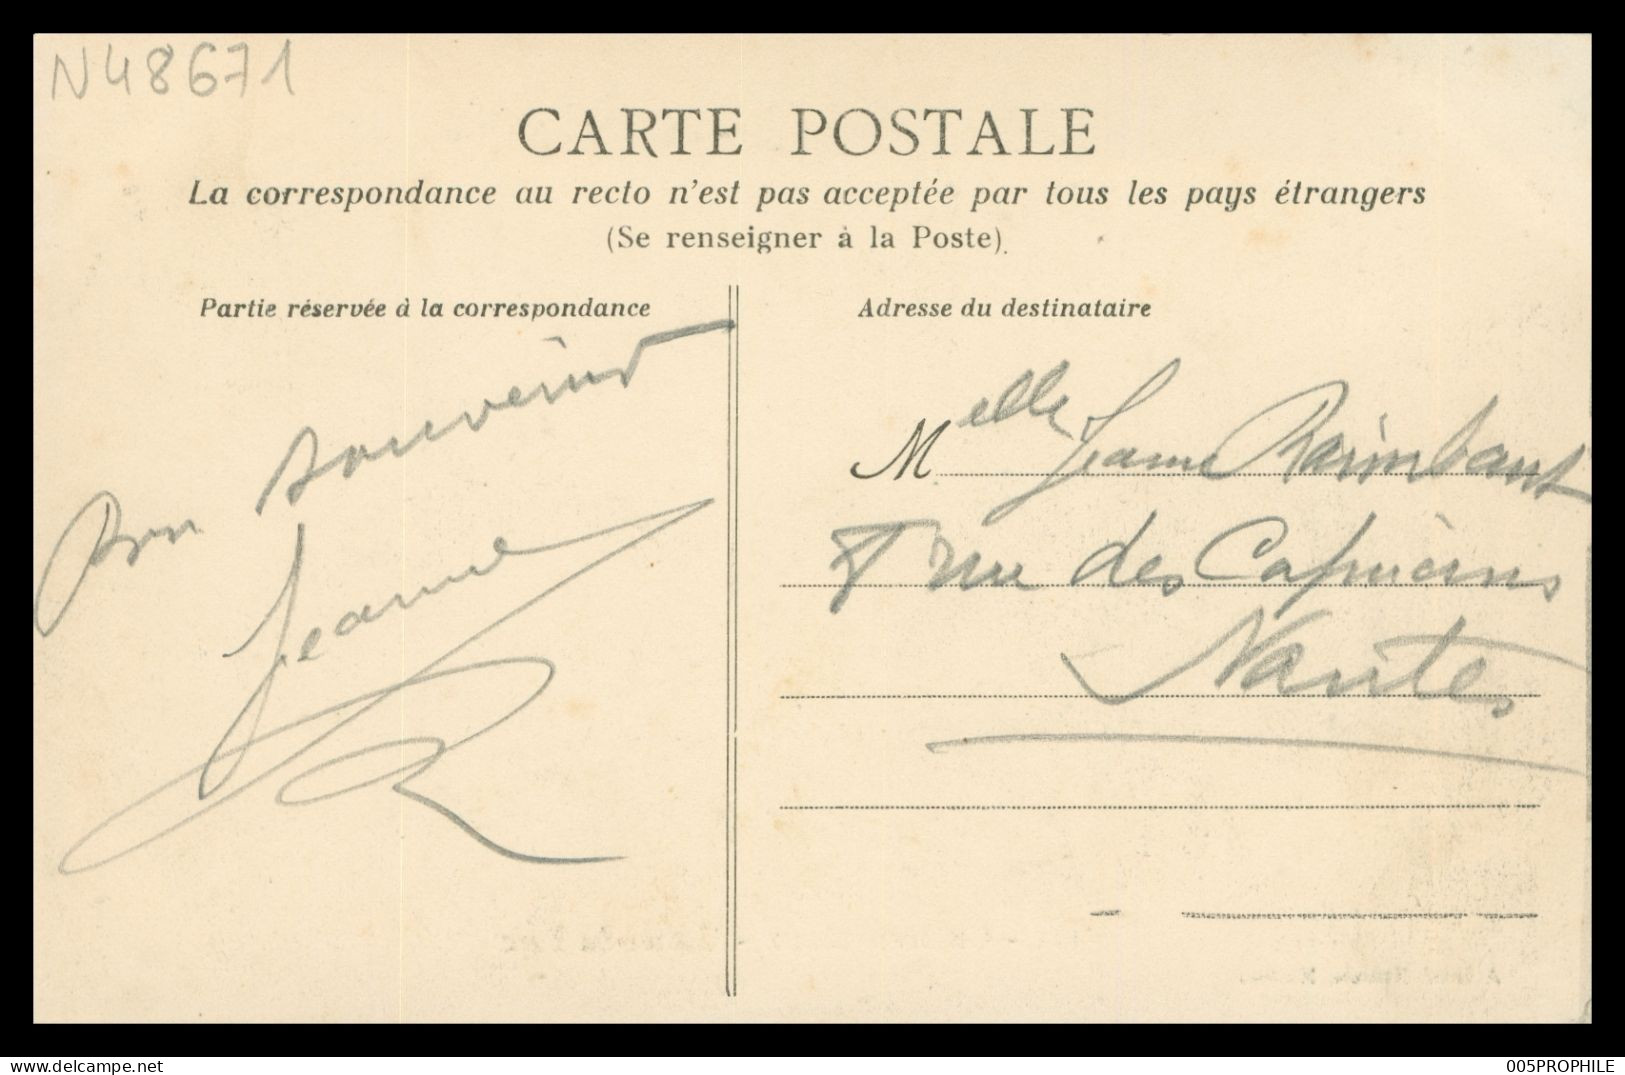 N48671
CARTE POSTALE
La correspondance au recto n'est pas acceptée par tous les pays étrangers
(Se renseigner à la Poste)
Partie réservée à la correspondance
Bon souvenir
Jeanne
Adresse du destinataire
Melle Jeanne Raimbault
8 rue des Capucins
Nantes
005PROPHILE